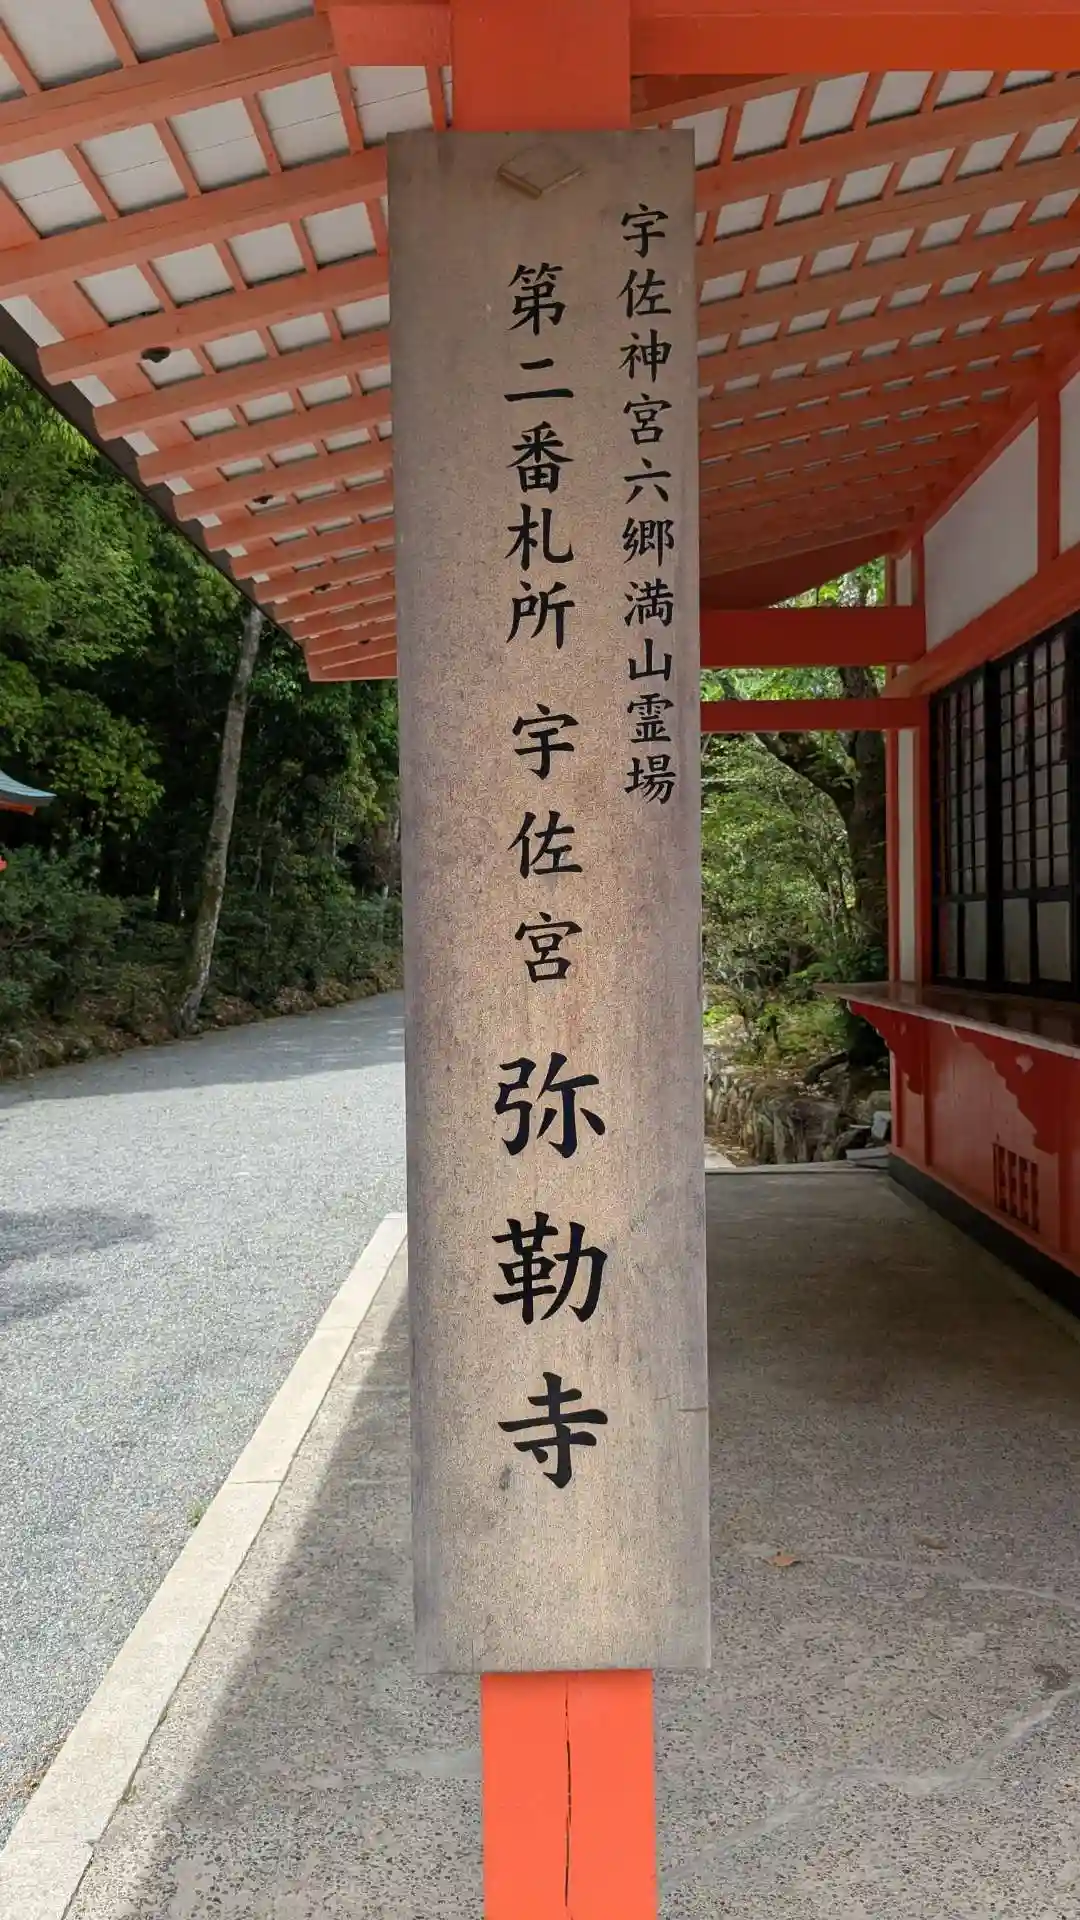 宇佐神宮六郷満山霊場
第二番札所 宇佐宮 弥勒寺